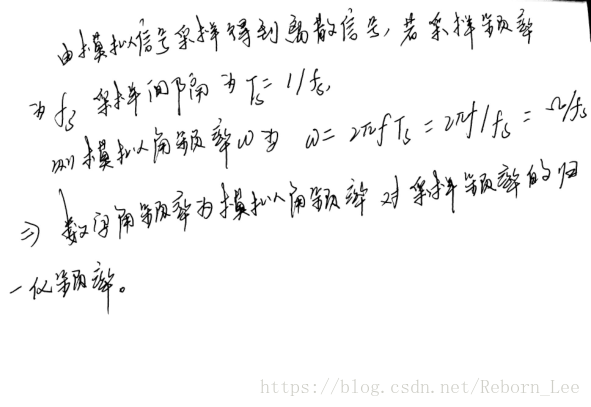 由模拟信号采样得到离散信号，若采样频率
为 fs 采样间隔为 Ts = 1/fs,
则模拟角频率ω为 ω = 2πfTs = 2πf/fs = Ω/fs
⇒ 数字角频率为模拟角频率 对 采样频率的归
一化频率。
https://blog.csdn.net/Reborn_Lee